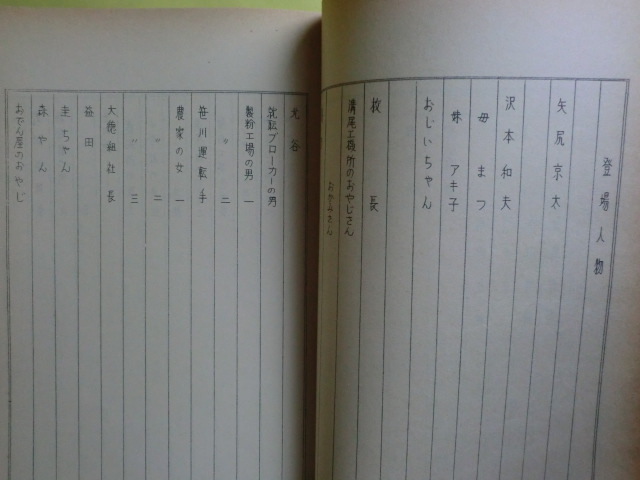 登場人物
矢尻京太
沢本和夫
母 まつ
妹 アキ子
おじいちゃん
牧 長
溝尾工務所のおやじさん
おかみさん
尤谷
訛ブローカーの男
製粉工場の男 一
〃 二
笹川運転手
農家の女 一
〃 二
〃 三
大亀組社長
益田
圭ちゃん
森やん
おでん屋のおやじ